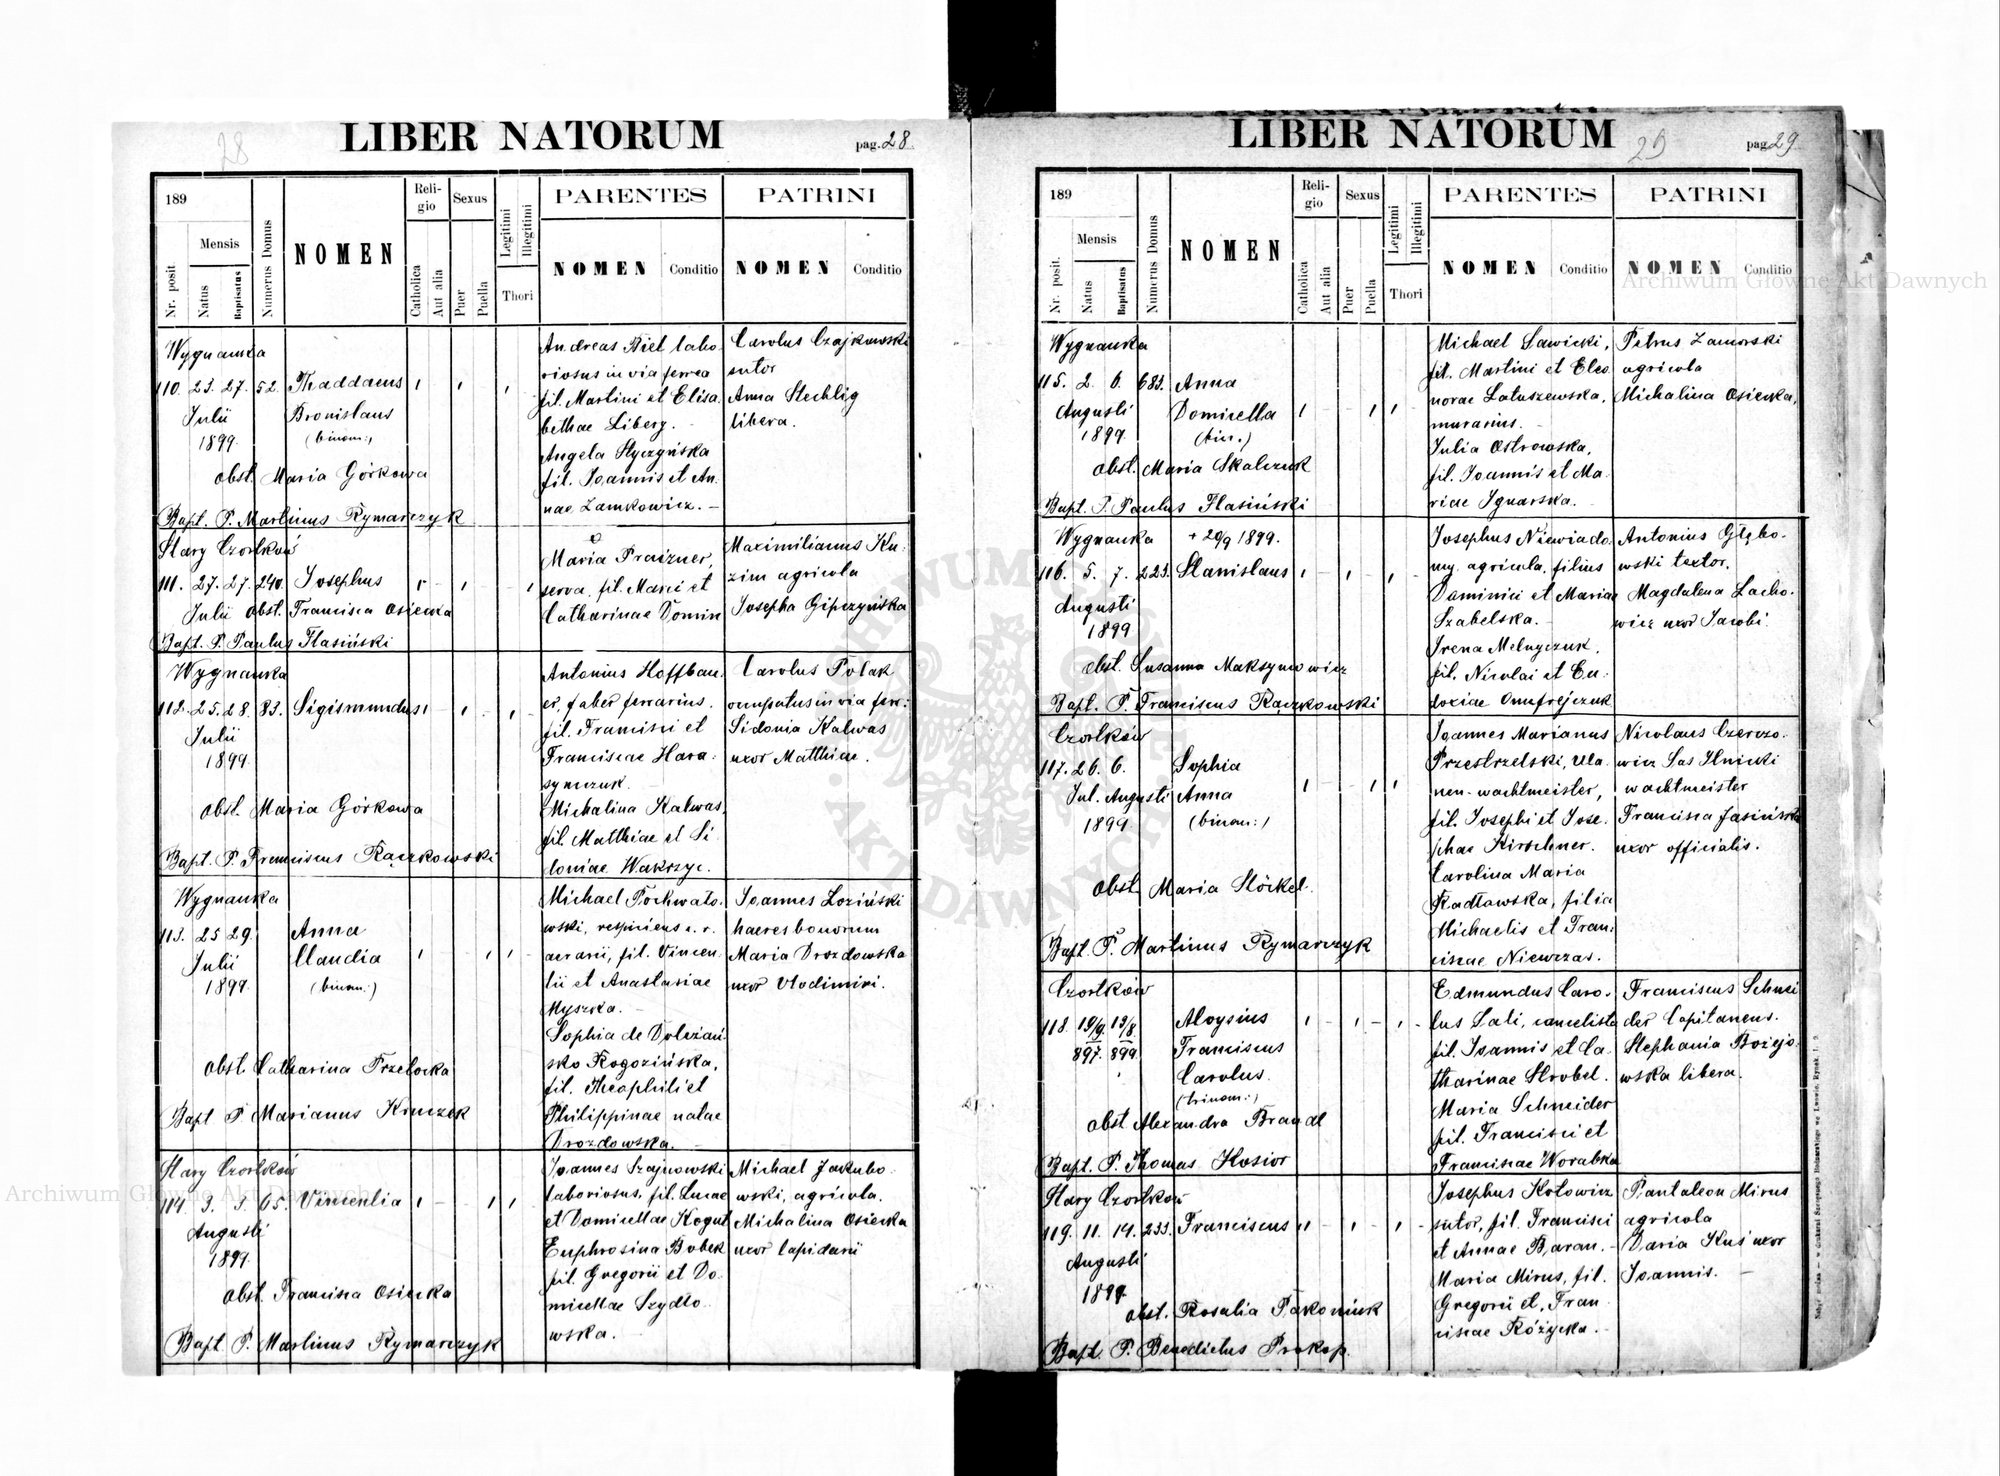 LIBER NATORUM
28
pag. 28.
189
Nr. posit.
Mensis
Natus
Baptisatus
Numerus Domus
NOMEN
Reli-
gio
Catholica
Aut alia
Sexus
Puer
Puella
Legitimi
Illegitimi
Thori
PARENTES
NOMEN
Conditio
PATRINI
NOMEN
Conditio
Wygnanka
110. 23. 27. 52. Thaddaeus
Julii
Bronislaus
1899.
(binom:)
obst. Maria Górkowa
Bapt. P. Martinus Rymarczyk
Andreas Biel labo-
riosus in via ferrea
fil. Martini et Elisa-
bethae Liberg. -
Angela Styczyńska
fil. Joannis et An-
nae Zamkowicz. -
Carolus Czajkowski
sutor
Anna Stechlig
libera.
Stary Czortków
111. 27. 27. 240. Josephus
Julii obst. Francisca Osiecka
Bapt. P. Paulus Flasiński
Maria Praizner,
serva, fil. Marci et
Catharinae Domin
Maximilianus Ku-
zim agricola
Josepha Gipczyńska
Wygnanka
112. 25. 28. 83. Sigismundus
Julii
1899.
obst. Maria Górkowa
Bapt. P. Franciscus Rączkowski
Antonius Hoffbau-
er, faber ferrarius,
fil. Francisci et
Franciscae Hara-
symczuk.
Michalina Kalwas,
fil. Matthiae et Si-
doniae Wakrzyc.
Carolus Polak
occupatus in via ferr:
Sidonia Kalwas
uxor Matthiae.
Wygnanka
113. 25 29.
Anna
Julii
Claudia
1899.
(binom:)
obst. Catharina Trzebocka
Bapt P. Marianus Kruczek
Michael Pochwato-
wski, respiciens c. r.
aerarii, fil. Vincen-
tii et Anastasiae
Myszka.
Sophia de Dołczań-
sko Rogozińska,
fil. Theophili et
Philippinae natae
Drozdowska. -
Joannes Łoziński
haeres bonorum
Maria Drozdowska
uxor Vlodimiri.
Stary Czortków
114. 3. 5. 65. Vincentia
Augusti
1899.
obst. Francisca Osiecka
Bapt. P. Martinus Rymarczyk
Joannes Szajnowski
laboriosus, fil. Lucae
et Domicellae Kogut
Euphrosina Bobek
fil. Gregorii et Do-
micellae Szydło-
wska. -
Michael Jakubo-
wski, agricola.
Michalina Osiecka
uxor lapidarii
LIBER NATORUM
29
pag. 29.
189
Nr. posit.
Mensis
Natus
Baptisatus
Numerus Domus
NOMEN
Reli-
gio
Catholica
Aut alia
Sexus
Puer
Puella
Legitimi
Illegitimi
Thori
PARENTES
NOMEN
Conditio
PATRINI
NOMEN
Conditio
Wygnanka
115. 2. 6. 683. Anna
Augusti
Domicella
1899.
(bin.)
obst. Maria Skalczuk
Bapt. P. Paulus Flasiński
Michael Sawicki,
fil. Martini et Eleo-
norae Latuszewska,
murarius. -
Julia Ostrowska,
fil. Joannis et Ma-
riae Ignarska. -
Petrus Zamorski
agricola
Michalina Osiecka,
Wygnanka + 20/9 1899.
116. 5. 7. 223. Stanislaus
Augusti
1899
obst. Susanna Maksymowicz
Bapt. P. Franciscus Rączkowski
Josephus Niewiado-
my, agricola, filius
Dominici et Mariae
Szabelska. -
Irena Melnyczuk,
fil. Nicolai et Eu-
doxiae Onufrejczuk
Antonius Głębo-
wski textor.
Magdalena Lacho-
wicz uxor Jacobi.
Czortków
117. 26. 6. Sophia
Jul. Augusti Anna
1899 (binom:)
obst. Maria Stöckel.
Bapt. P. Martinus Rymarczyk
Joannes Marianus
Przestrzelski, ula-
nen-wachtmeister,
fil. Josephi et Jose-
phae Kirschner.
Carolina Maria
Radłowska, filia
Michaelis et Fran-
ciscae Niewczas.
Nicolaus Czerczo-
wicz Sas Ilnicki
wachtmeister
Francisca Jasińska
uxor officialis.
Czortków
118. 19/9. 19/8
897. 899.
Aloysius
Franciscus
Carolus.
(trinom:)
obst Alexandra Brandl
Bapt. P. Thomas Kosior
Edmundus Caro-
lus Lali, cancelista
fil. Joannis et Ca-
tharinae Strobel.
Maria Schneider
fil. Francisci et
Franciscae Worabka
Franciscus Schnei
der Capitaneus.
Stephania Bożejo-
wska libera.
Stary Czortków
119. 11. 14. 233. Franciscus
Augusti
1899
obst. Rosalia Pakoniuk
Bapt. P. Benedictus Prokop.
Josephus Kotowicz
sutor, fil. Francisci
et Annae Baran. -
Maria Mirus, fil.
Gregorii et Fran-
ciscae Różycka. -
Pantaleon Mirus
agricola
Daria Kuś uxor
Joannis. -
Archiwum Główne Akt Dawnych
Archiwum Główne Akt Dawnych
ARCHIWUM GŁÓWNE
AKT DAWNYCH